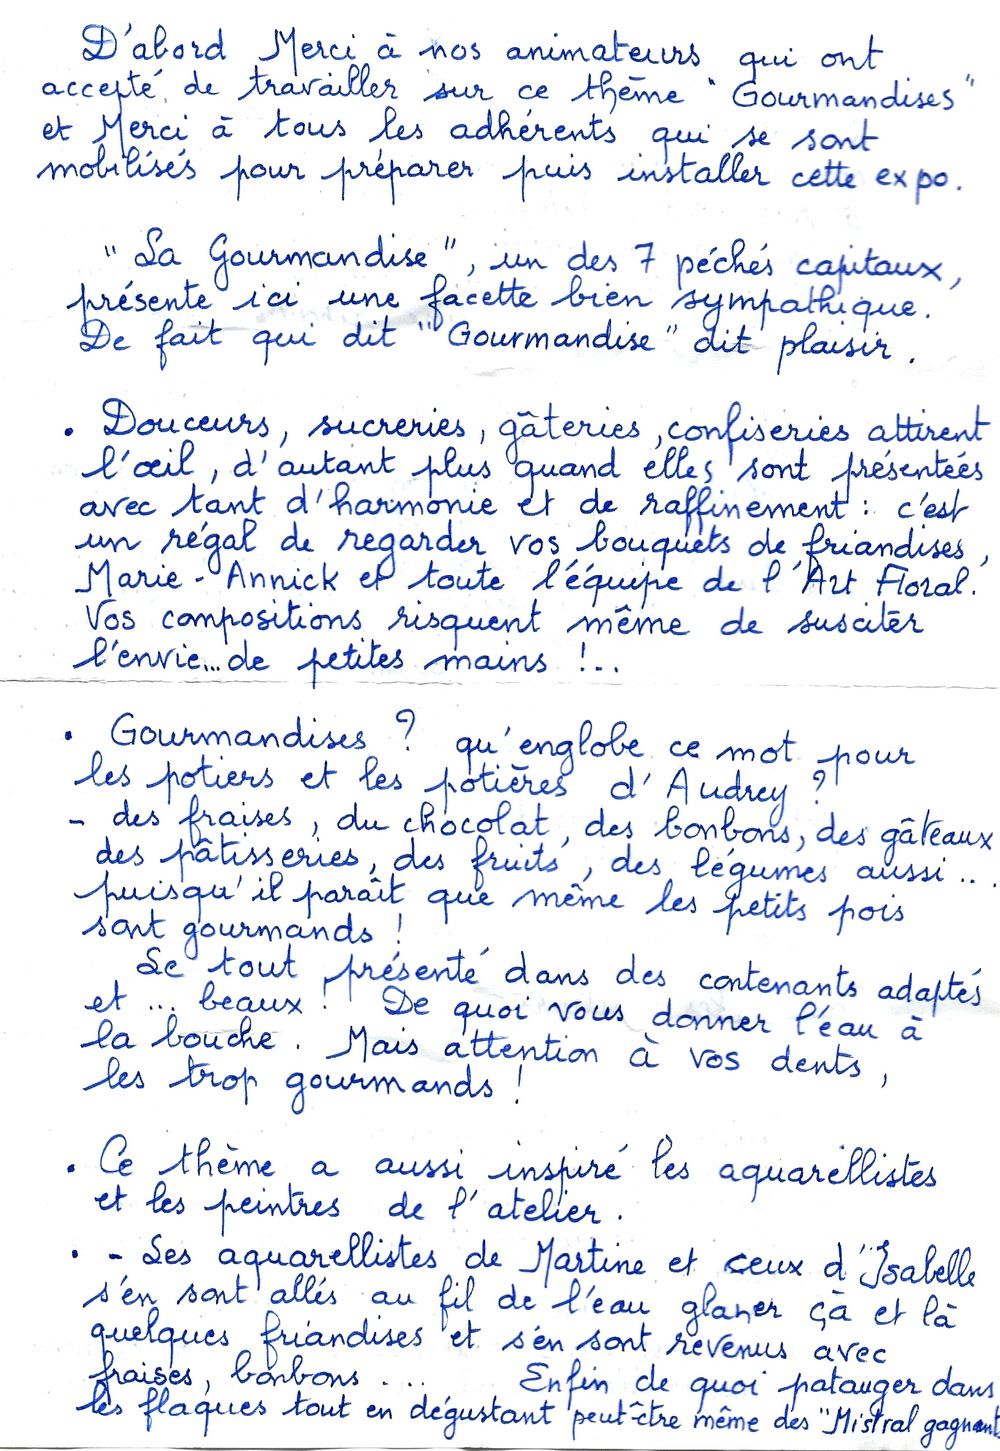 D'abord Merci à nos animateurs qui ont
accepté de travailler sur ce thème "Gourmandises"
et Merci à tous les adhérents qui se sont
mobilisés pour préparer puis installer cette expo.
"La Gourmandise", un des 7 péchés capitaux,
présente ici une facette bien sympathique.
De fait qui dit "Gourmandise" dit plaisir.
• Douceurs, sucreries, gâteries, confiseries attirent
l'œil, d'autant plus quand elles sont présentées
avec tant d'harmonie et de raffinement : c'est
un régal de regarder vos bouquets de friandises,
Marie-Annick et toute l'équipe de l'Art Floral.
Vos compositions risquent même de susciter
l'envie... de petites mains !..
• Gourmandises ? qu'englobe ce mot pour
les potiers et les potières d'Audrey ?
- des fraises, du chocolat, des bonbons, des gâteaux
des pâtisseries, des fruits, des légumes aussi ...
puisqu'il paraît que même les petits pois
sont gourmands !
Le tout présenté dans des contenants adaptés
et ... beaux ! De quoi vous donner l'eau à
la bouche. Mais attention à vos dents,
les trop gourmands !
• Ce thème a aussi inspiré les aquarellistes
et les peintres de l'atelier.
• - Les aquarellistes de Martine et ceux d'Isabelle
s'en sont allés au fil de l'eau glaner çà et là
quelques friandises et s'en sont revenus avec
fraises, bonbons .... Enfin de quoi patauger dans
les flaques tout en dégustant peut-être même des "Mistral gagnant